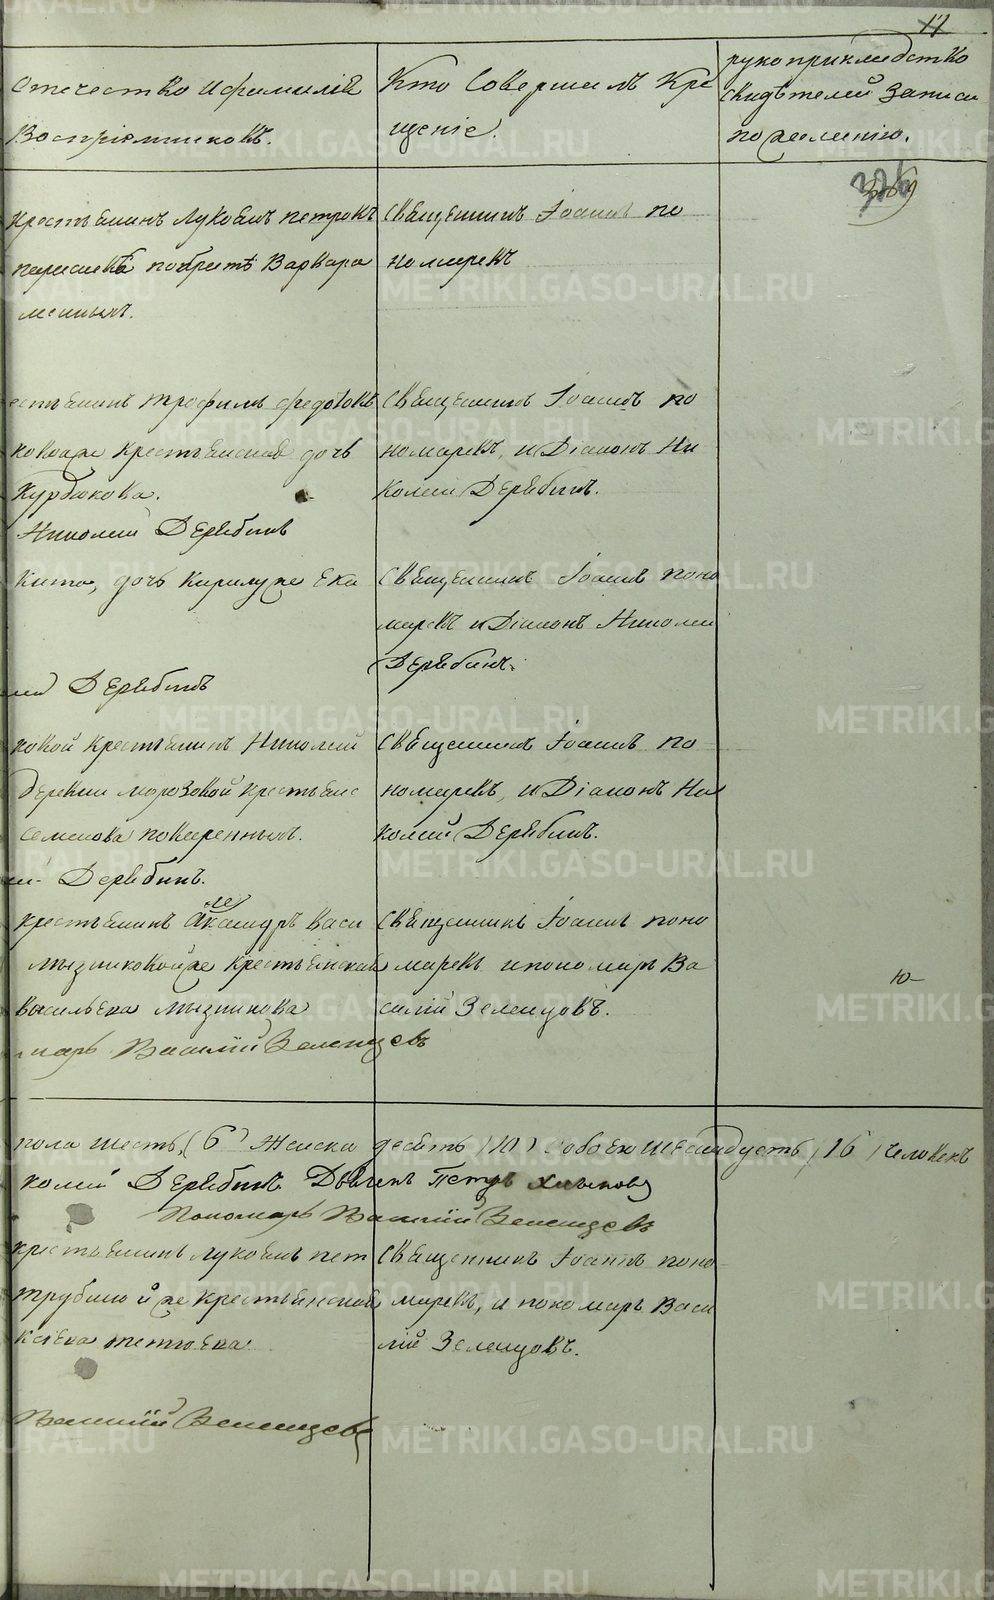 17
Отечество и фамилія
Воспріемниковъ.
Кто Совершалъ Кре
щеніе.
рукоприкладство
свидѣтелей Записи
по желанію.
крестьянинъ Лукоянъ петровъ
Варвара
Священникъ Іоаннъ по
номаревъ
естьянинъ трофимъ федотовъ
ковоиже крестьянская дочь
Курбакова.
Николай Дерябинъ
Священникъ Іоаннъ по
номаревъ, и Діаконъ Ни
колай Дерябинъ.
кита, дочь Ека
Священникъ Іоаннъ поно
маревъ и Діаконъ Николай
Дерябинъ.
лай Дерябинъ
новой крестьянинъ Николай
деревни морозовой крестьянс
семенова
ай Дерябинъ.
Священникъ Іоаннъ по
номаревъ, и Діаконъ Ни
колай Дерябинъ.
крестьянинъ Александръ Васи
мызниковойже крестьянская
васильева мызникова
марь Василій Зеленцовъ
Священникъ Іоаннъ поно
маревъ и пономарь Ва
силій Зеленцовъ.
пола шесть, (6) Женска десять (10) а обоего шеснадцеть (16) человекъ
колай Дерябинъ Дьячекъ Петръ
Пономарь Василій Зеленцовъ
крестьянинъ Лукоянъ пет
трубинойже крестьянская
Священникъ Іоаннъ поно
маревъ, и пономарь Васи
лій Зеленцовъ.
Василій Зеленцовъ
METRIKI.GASO-URAL.RU